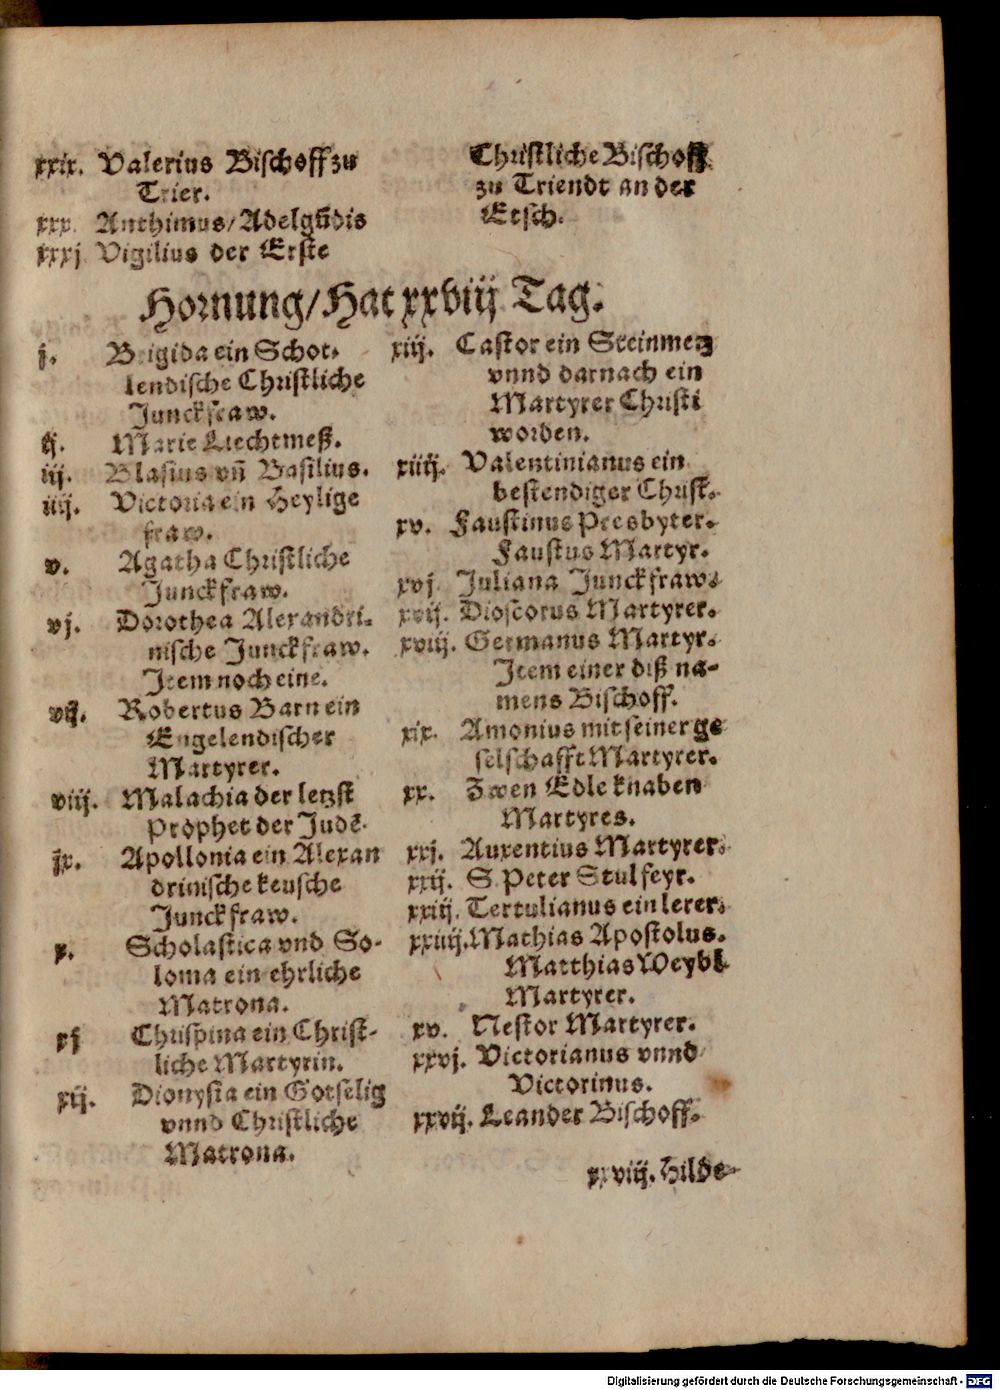 xxix. Valerius Bischoff zu
Trier.
xxx. Anthimus/Adelgūdis
xxxj Vigilius der Erste
Christliche Bischoff
zu Triendt an der
Etsch.
Hornung/Hat xxviij Tag.
j. Brigida ein Schot-
lendische Christliche
Junckfraw.
ij. Marie Liechtmeß.
iij. Blasius vñ Basilius.
iiij. Victoria ein Heylige
fraw.
v. Agatha Christliche
Junckfraw.
vj. Dorothea Alexandri-
nische Junckfraw.
Item noch eine.
vij. Robertus Barn ein
Engelendischer
Martyrer.
viij. Malachia der letzst
Prophet der Judē.
jx. Apollonia ein Alexan
drinische keusche
Junckfraw.
x. Scholastica vnd So-
loma ein ehrliche
Matrona.
xj Chrispina ein Christ-
liche Martyrin.
xij. Dionysia ein Gotselig
vnnd Christliche
Matrona.
xiij. Castor ein Steinmetz
vnnd darnach ein
Martyrer Christi
worden.
xiiij. Valentinianus ein
bestendiger Christ.
xv. Faustinus Presbyter.
Faustus Martyr.
xvj Juliana Junckfraw.
xvij. Dioscorus Martyrer.
xviij. Germanus Martyr.
Item einer diß na-
mens Bischoff.
xix. Amonius mit seiner ge
selschafft Martyrer.
xx. Zwen Edle knaben
Martyres.
xxj. Auxentius Martyrer.
xxij. S Peter Stulfeyr.
xxiij. Tertulianus ein lerer.
xxiiij. Mathias Apostolus.
Matthias Weybl
Martyrer.
xv. Nestor Martyrer.
xxvj. Victorianus vnnd
Victorinus.
xxvij. Leander Bischoff.
xxviij. Hilde-
Digitalisierung gefördert durch die Deutsche Forschungsgemeinschaft - DFG